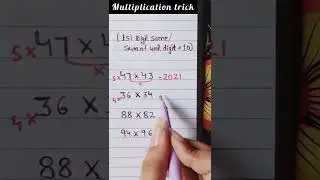 Multiplication trick
( 1st digit same/
Sum of unit digit = 10)
5x 47 x 43 = 2021
4x 36 x 34 =
88 x 82
94 x 96